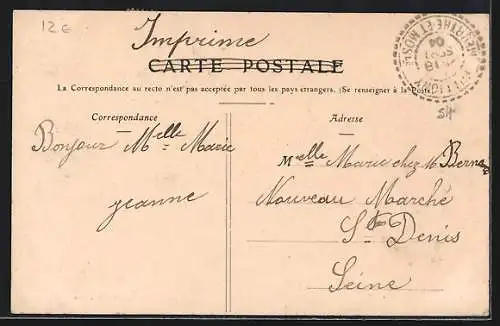 12 €
Imprimé
CARTE POSTALE
La Correspondance au recto n'est pas acceptée par tous les pays étrangers. (Se renseigner à la Poste)
Correspondance
Bonjour Melle Marie
jeanne
Adresse
Melle Marie chez M
Nouveau Marché
St Denis
Seine
MEURTHE-ET-MOSELLE
18
SEPT
04